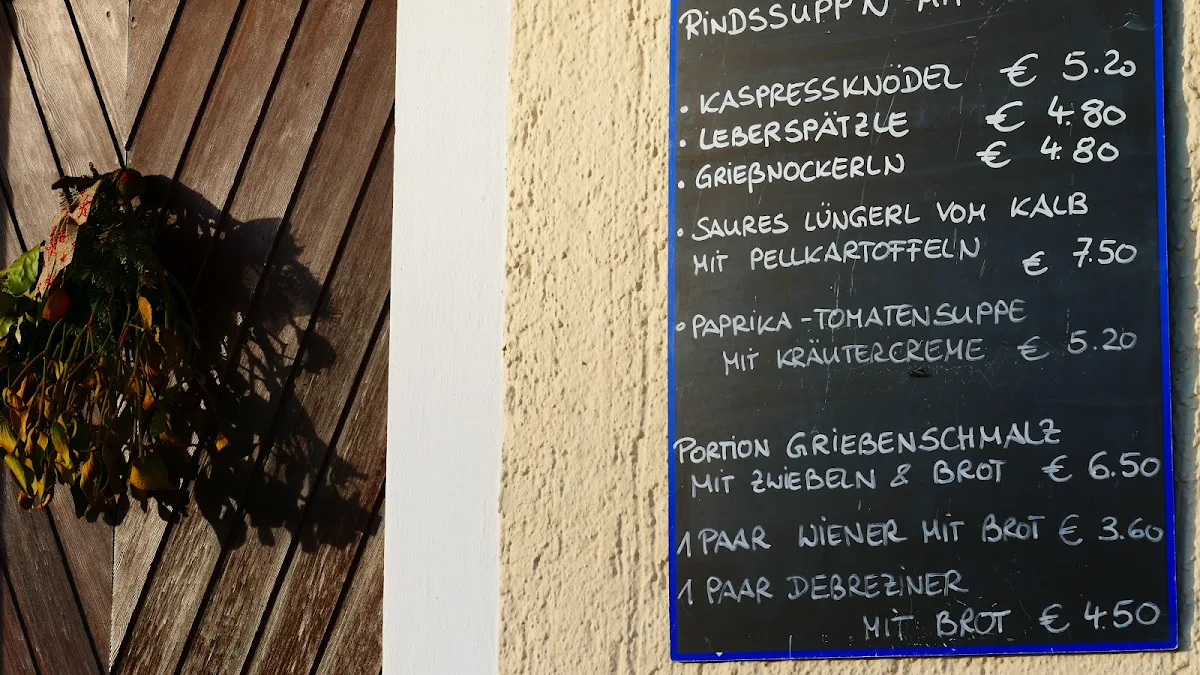 RINDSSUPP'N MIT
• KASPRESSKNÖDEL € 5.20
• LEBERSPÄTZLE € 4.80
• GRIEßNOCKERLN € 4.80
• SAURES LÜNGERL VOM KALB
MIT PELLKARTOFFELN € 7.50
• PAPRIKA-TOMATENSUPPE
MIT KRÄUTERCREME € 5.20
PORTION GRIEBENSCHMALZ
MIT ZWIEBELN & BROT € 6.50
1 PAAR WIENER MIT BROT € 3.60
1 PAAR DEBREZINER
MIT BROT € 4.50